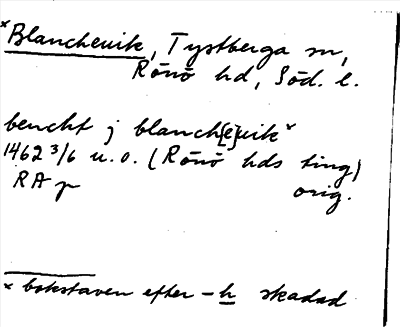 ×Blancheuik, Tystberga sn,
Rönö hd, Söd. l.
benckt j blanch[e]uik×
1462 3/6 u.o. (Rönö hds ting)
RA p orig.
× bokstaven efter -h skadad